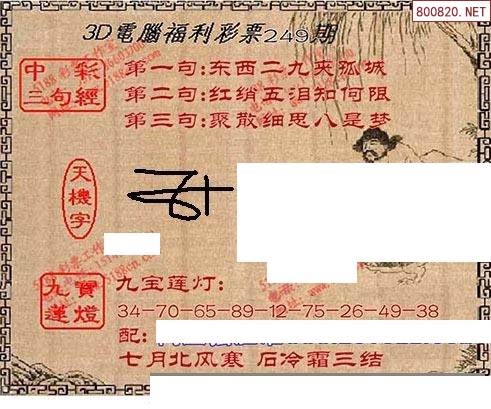 800820.NET
3D電腦福利彩票249期
中彩
三句經
第一句:东西二九夹孤城
第二句:红绡五泪知何限
第三句:聚散细思八是梦
天機字
九寶
蓮燈
九宝莲灯:
34-70-65-89-12-75-26-49-38
配:
七月北风寒 后冷霜三结